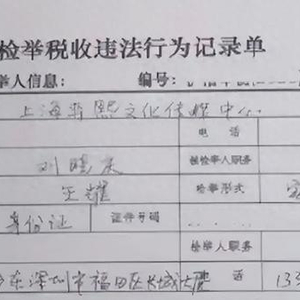 检举税收违法行为记录单
举人信息： 编号：
上海 熙文化传播中心
电话
刘晓庆 被检举人职务
王耀 检举形式 实
身份证 证件号码
检举人职务
东深圳市福田区长城大厦 133